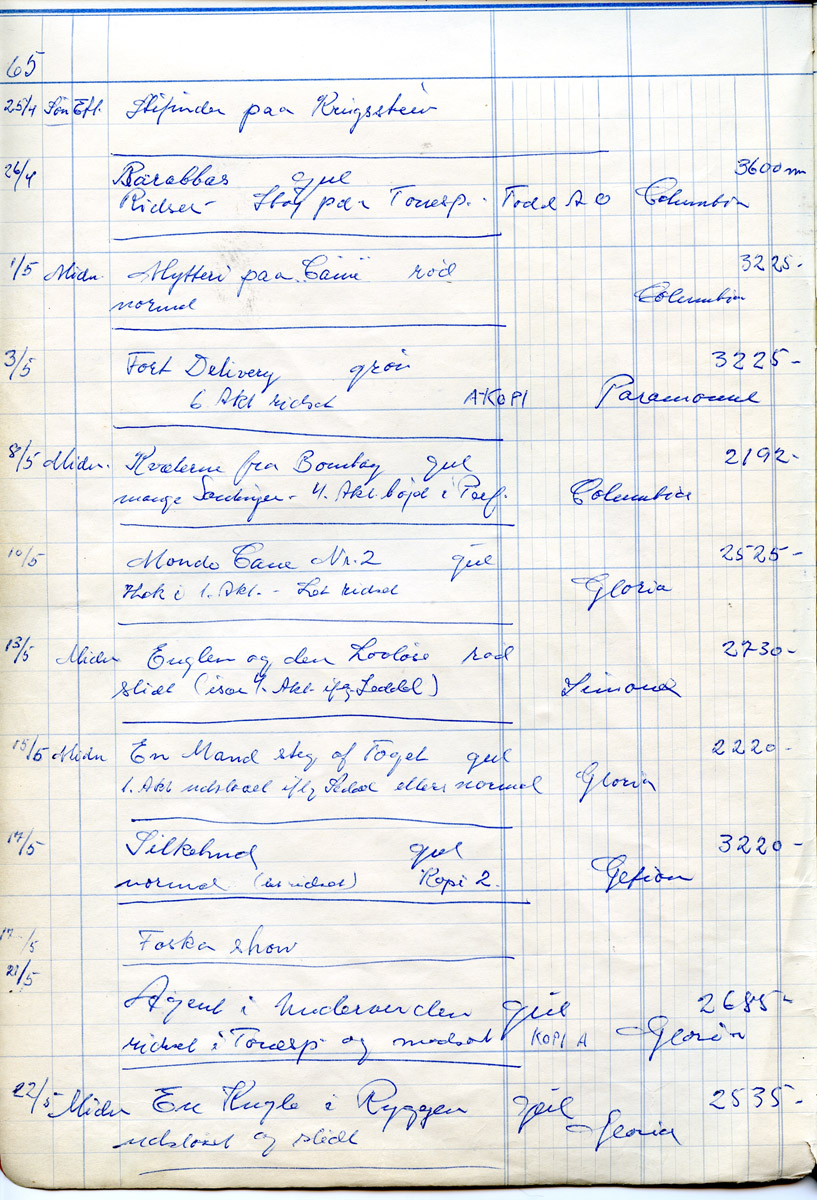 65
25/4 Søn Eft. Stifinder paa Krigsstein
26/4 Barabbas gul 3600 m
Ridser - Støj paa Tonesp. - Todd AO Columbia
1/5 Midn. Mytteri paa "Caine" rød 3225-
normal Columbia
3/5 Fort Delivery grøn 3225-
6 Akt ridset A KOPI Paramount
8/5 Midn. Kvalerne fra Bombay gul 2192-
mange Samlinger - 4. Akt. bøjet i Perf. Columbia
10/5 Mondo Cane Nr. 2 gul 2525-
Hak i 1. Akt. - Let ridset Gloria
13/5 Midn Englen og den Lovløse rød 2730-
slidt (især 4. Akt ifg Seddel)
15/5 Midn En Mand steg af Toget gul 2220-
1. Akt udslidt iflg Seddel ellers normal Gloria
17/5 Silkehud gul 3220-
normal (let ridset) Kopi 2. Gefion
17-/5 Foska show
21/5
Agent i Underverden gul 2685-
ridset i Tonesp og KOPI A Gloria
22/5 Midn En Kugle i Ryggen gul 2535-
udslidt og slidt Gloria